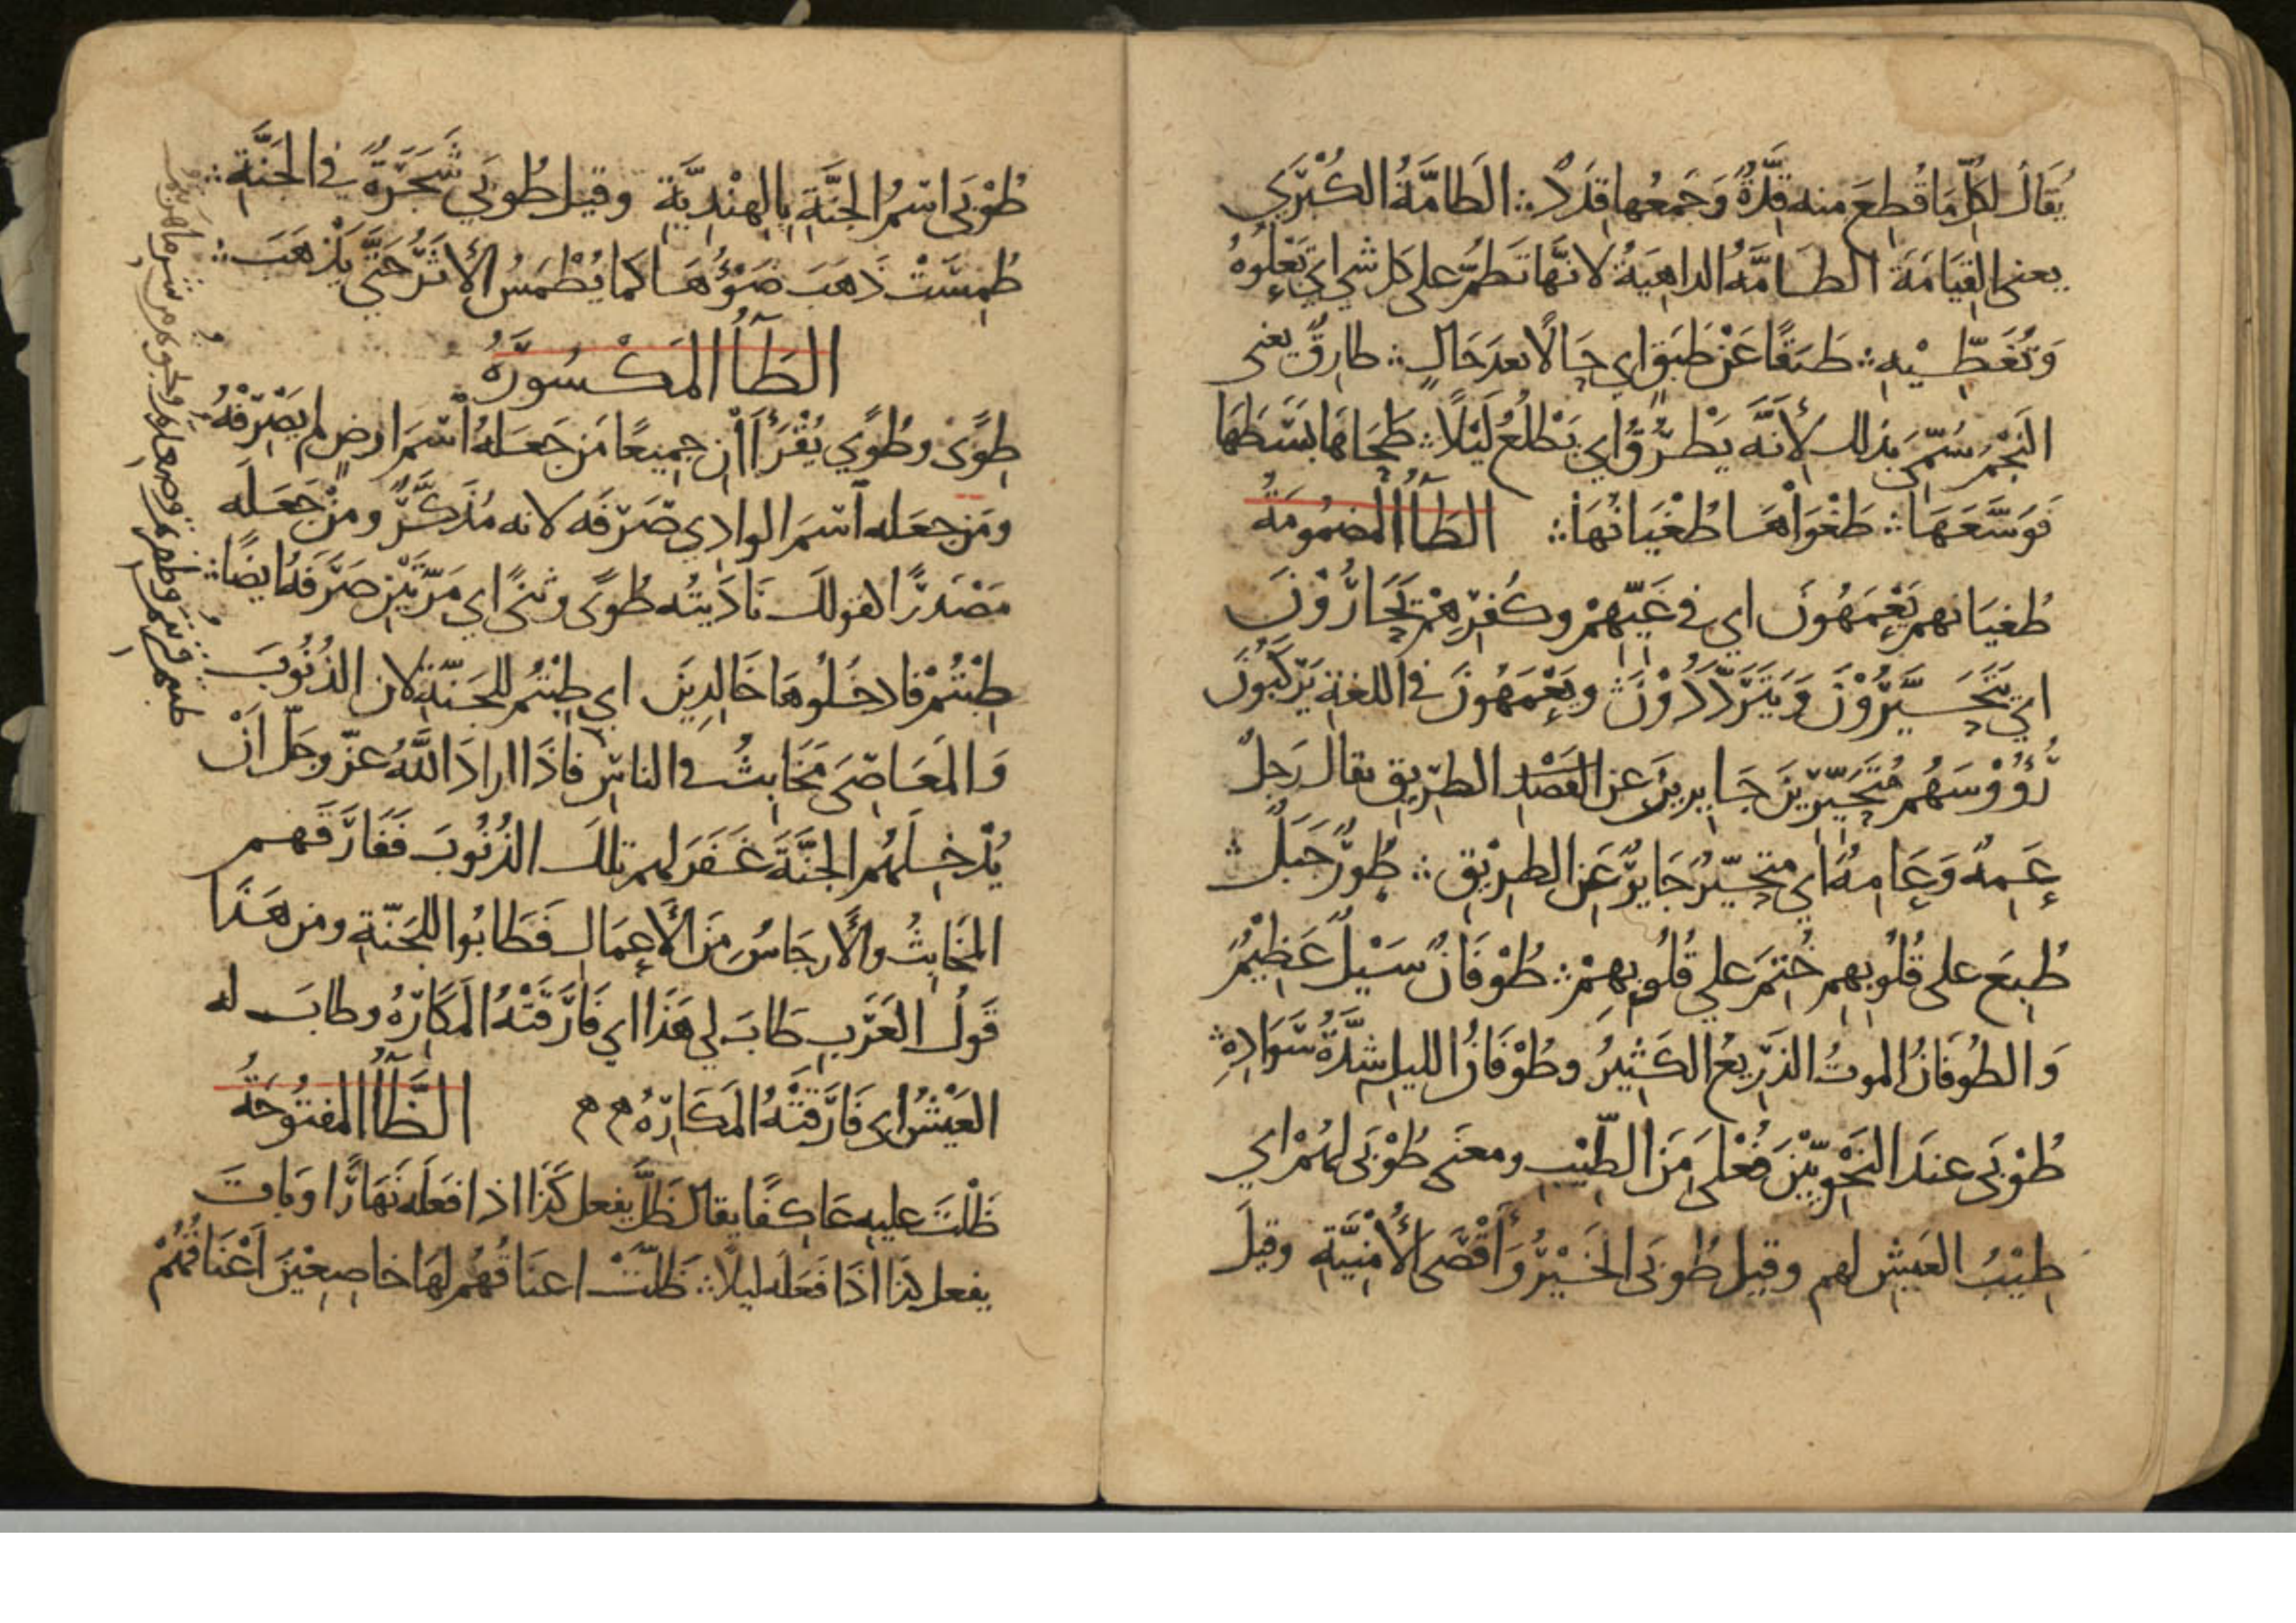 يُقَالُ لِكُلِّ مَا قُطِعَ منه قِدَّةٌ وَجَمعُها قِدَدٌ ؞ الطَامَّةُ الكُبْرَي
يعني القِيَامَةَ الطَامَّةُ الداهِيَةُ لانَّها تَطُمُّ على كل شي اي تَعْلُوهُ
وَتُغَطِّيْهِ ؞ طَبَقًا عَنْ طَبَقٍ اي حَالًا بعدَ حَالٍ ؞ طارِقٌ يعني
النَجْمَ سُمِّيَ بذلك لأَنَّه يَطْرُقُ اي يَطْلُعُ لَيْلًا ؞ طَحَاهَا بَسَطَهَا
فَوَسَّعَهَا ؞ طَغْوَاهَا طُغْيَانُهَا ؞ الطَآءُ المضمُومَةُ
طُغيَانهم يَعْمَهُونَ اي في غَيِّهِمْ وكُفْرِهِمْ يَحَارُوْنَ
اي يَتَحَيَّرُوْنَ وَيَتَرَدَّدُوْنَ ويَعْمَهُونَ في اللغةِ يَرْكَبُونَ
رُؤُوْسَهُم مُتَحَيِّرِيْنَ جَايِرِيْنَ عن القصْدِ الطرِيقِ يقال رَجلٌ
عَمِهٌ وَعَامِهٌ اي متحيِّرٌ جَايِرٌ عَنِ الطرِيْقِ ؞ طُوْرٌ جَبَلٌ ؞
طُبِعَ على قُلُوبِهِم خُتِمَ علي قُلُوبِهِمْ ؞ طُوْفَانٌ سَيْلٌ عَظِيْمٌ
وَالطُوفَانُ الموتُ الذَرِيعُ الكَثِيرُ وطُوْفَانُ الليلِ شِدَّةُ سَوَادِهِ ؞
طُوْبَى عندَ النَحْوِيِّيْنَ فُعْلَى مَنَ الطِّيْبِ ومعنَى طُوْبَى لهُمْ اي
طِيْبُ العَيشِ لهم وقيل طُوبَى الخَيْرُ وَأَقْصَى الأُمْنِيَّةِ وقيلَ
طُوْبَى اسْمُ الجَنَّةِ بِالهِنْدِيَّةِ وقيل طُوبَي شَجَرَةٌ في الجَنَّةِ ؞
طُمِسَتْ ذَهَبَ ضَوْؤُهَا كَمَا يُطْمَسُ الأَثَرُ حَتَّي يَذْهَبَ ؞
الطَآءُ المَكْسُورَةُ
طِوًى وطُوًي يُقْرَأَانِ جميعًا مَن جَعَلَهُ اسْمَ ارضٍ لم يَصْرِفْهُ
ومَن جعَله اسْمَ الوادِي صَرَفَه لانه مُذَكَّرٌ ومنْ جَعَلَه
مَصْدَرًا لقولك نَادَيتُه طُوًى وثِنًى اي مَرَّتَيْنِ صَرَفَهُ ايضًا ؞
طِبْتُمْ فادخُلُوهَا خَالِدِينَ اي طِبْتُم للجَنَّةِ لان الذُنُوبَ
وَالمَعَاصِيَ مَخَابِثُ في الناسِ فاذَا ارادَ اللَّهُ عزّ وجَلّ اَنْ
يُدْخِلَهُم الجَنَّةَ غَفَرَ لهم تلكَ الذُنُوبَ فَفَارَقَهم
المَخَابِثُ والأَرجَاسُ مِنَ الأَعمَالِ فَطَابُوا للجَنّةِ ومن هَذَا
قَولُ العَرَبِ طَابَ لي هَذَا اي فَارَقَتْهُ المَكَارِهُ وطابَ له
العَيْشُ اي فَارَقَتْهُ المَكَارِهُ الظَآءُ المفتُوحَةُ
ظَلْتَ عليهِ عَاكِفًا يقال ظَلَّ يفعل كَذَا اذا فَعَلَه نَهَارًا وَبَاتَ
يفعل كذا اذَا فَعَلَه ليلاً ؞ ظَلَّتْ اعنَاقُهُم لهَا خاضِعِيْنَ اَعْنَاقُهُمْ